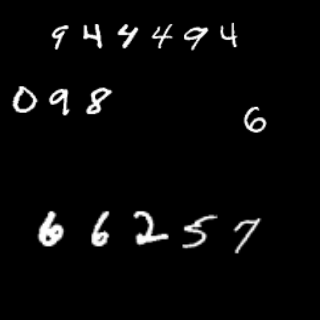 944494
098
6
66257